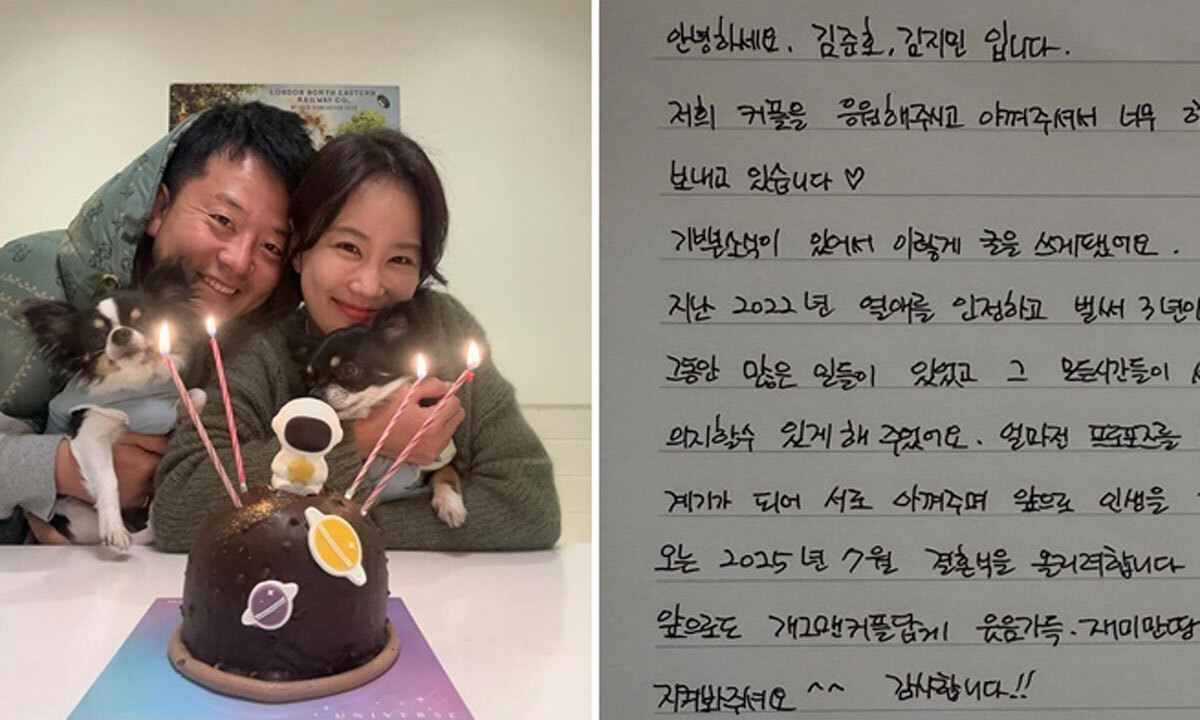 LONDON NORTH EASTERN
RAILWAY CO.
UNIVERSE
안녕하세요. 김준호, 김지민 입니다.
저희 커플을 응원해주시고 아껴주셔서 너무
보내고 있습니다 ♡
기쁜소식이 있어서 이렇게 글을 쓰게됐어요.
지난 2022년 열애를 인정하고 벌써 3년이
그동안 많은 일들이 있었고 그 모든시간들이
의지할수 있게 해 주었어요. 얼마전 프로포즈를
계기가 되어 서로 아껴주며 앞으로 인생을
오는 2025년 7월 결혼식을 올리려합니다
앞으로도 개그맨커플답게 웃음가득. 재미만땅
지켜봐주세요 ^^ 감사합니다!!